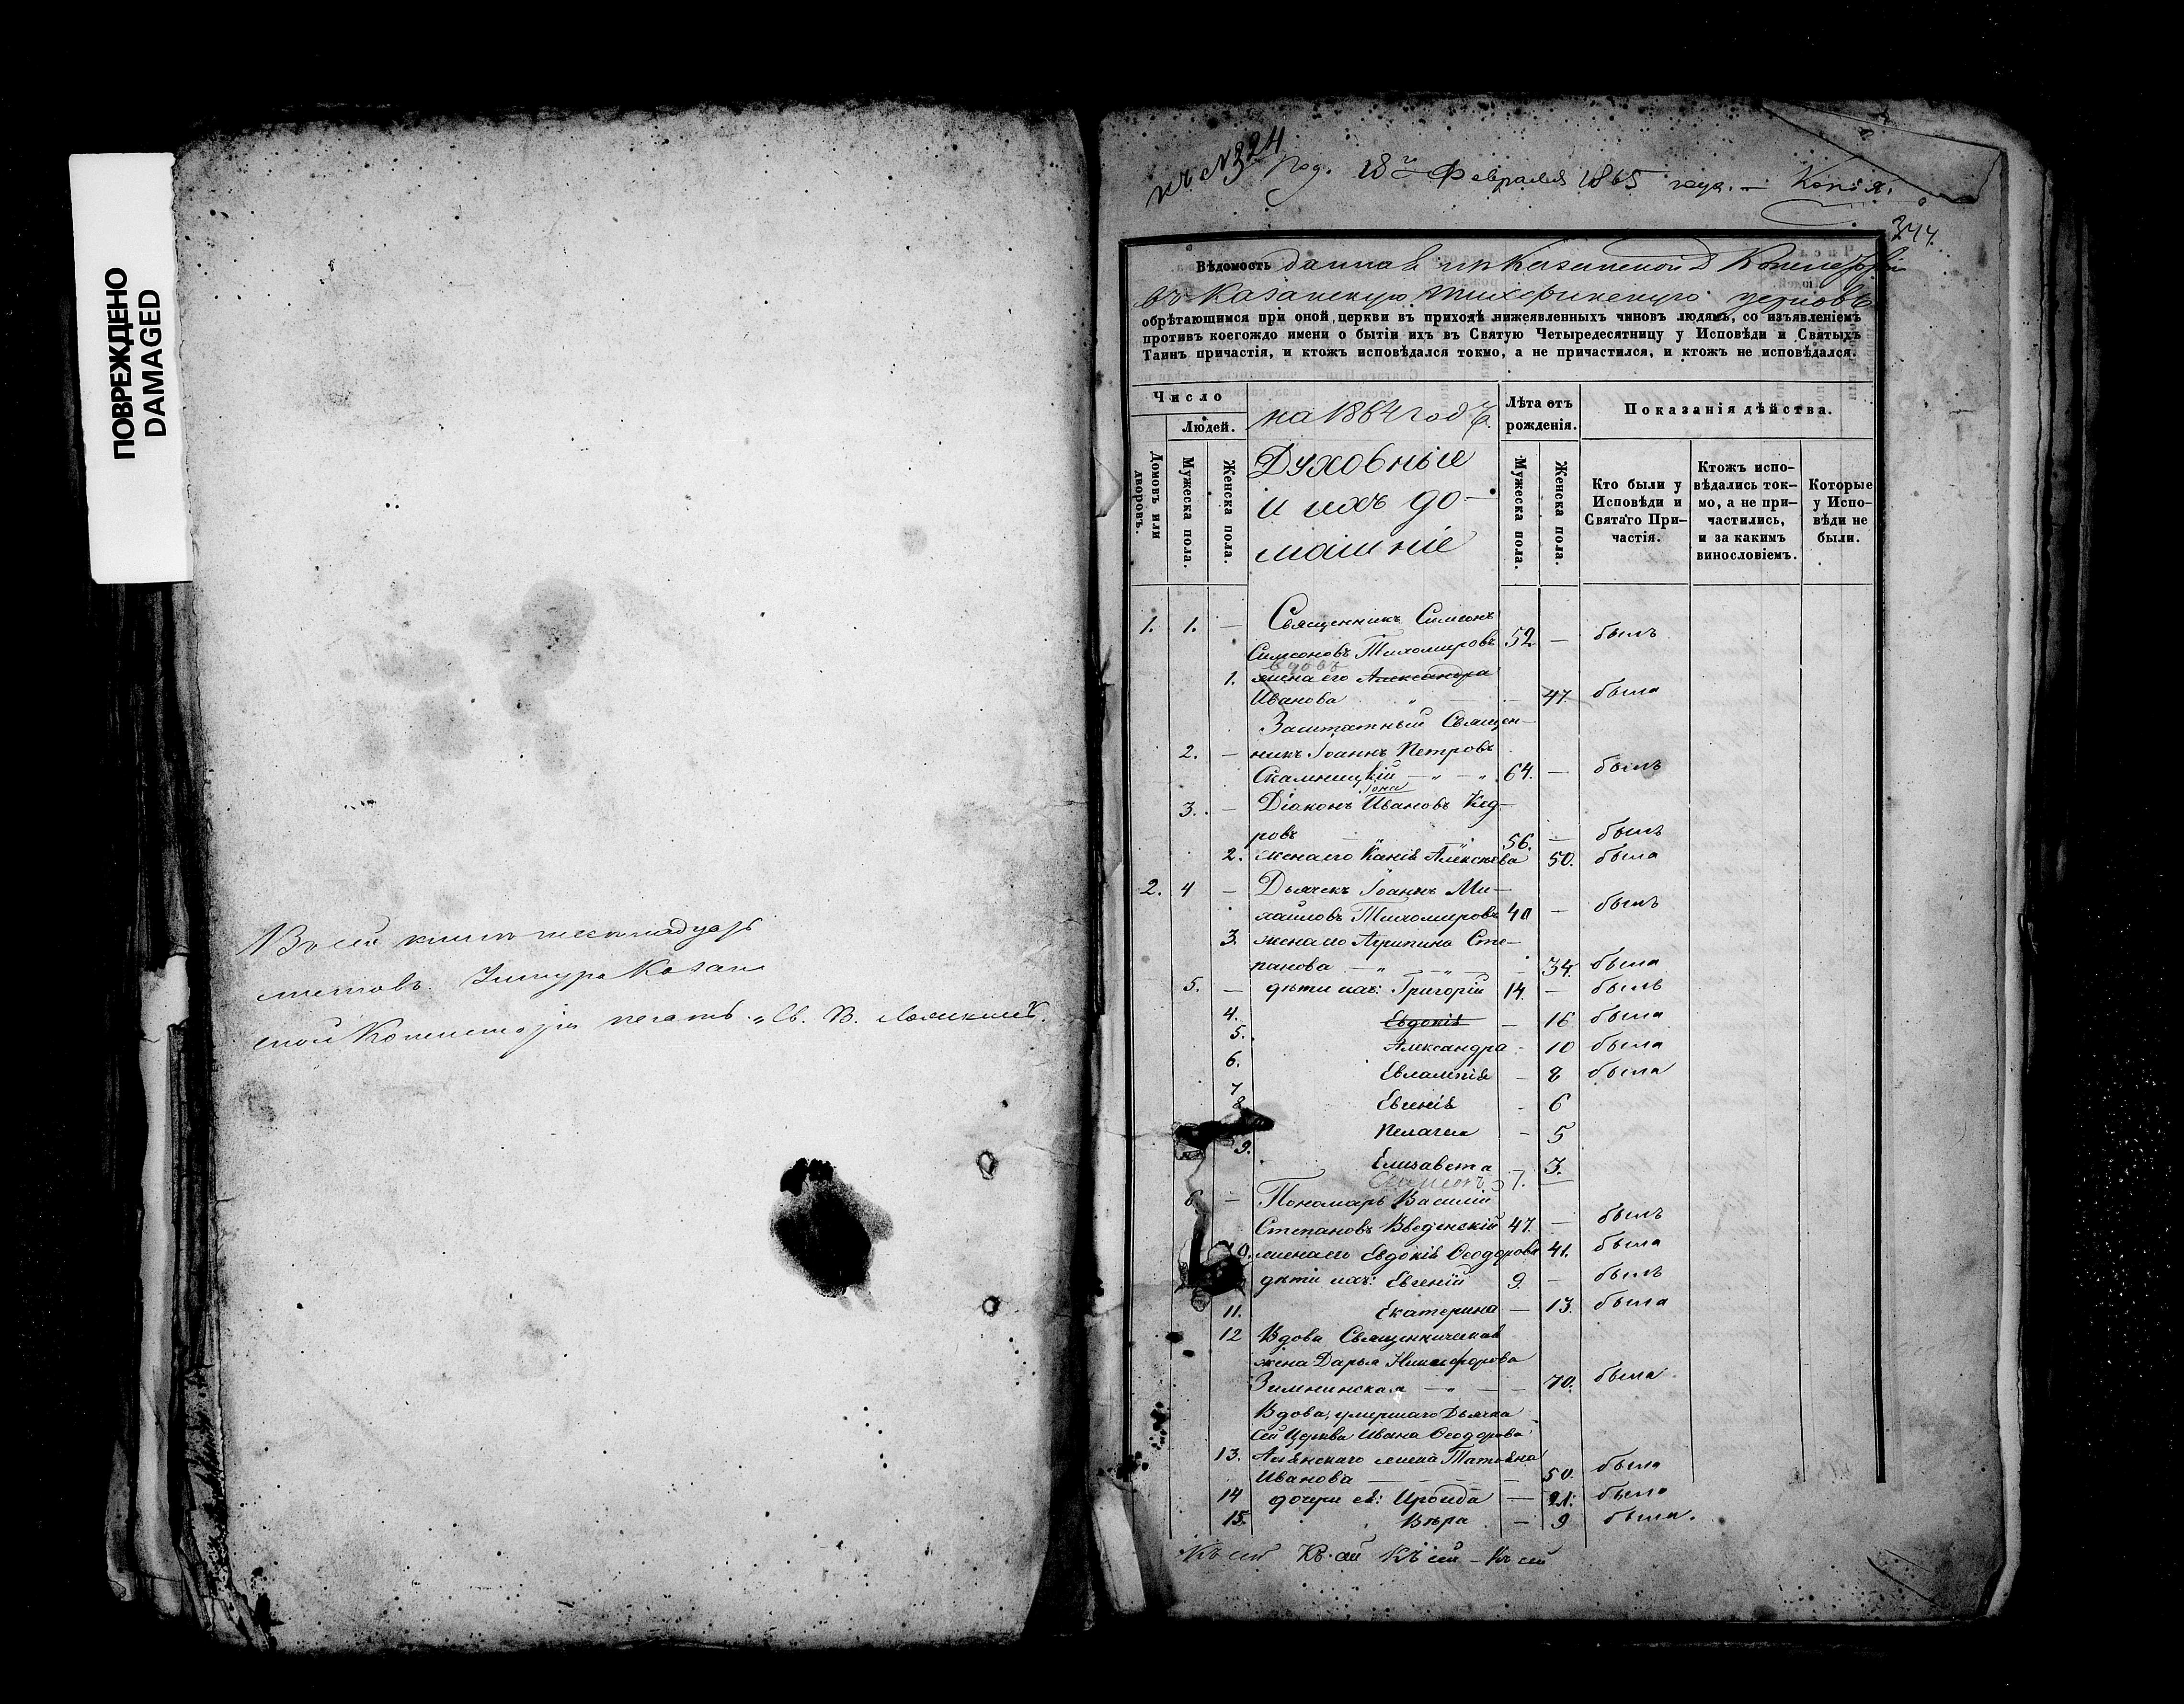 ПОВРЕЖДЕНО
DAMAGED
листовъ. Шнура Казан
ской Консисторіи печать.
къ № 324
Под. 18го Февраля 1865 года. — Копія.
344.
Вѣдомость данная изъ Казанской Д Консисторіи
въ Казанскую Тихвинскую церковь
обрѣтающимся при оной церкви въ приходѣ нижеявленныхъ чиновъ людямъ, со изъявленіемъ
противъ коегождо имени о бытіи ихъ въ Святую Четыредесятницу у Исповѣди и Святыхъ
Таинъ причастія, и ктожъ исповѣдался токмо, а не причастился, и ктожъ не исповѣдался.
Число
Людей.
Домовъ или дворовъ.
Мужеска пола.
Женска пола.
на 1864 годъ.
Духовные
и ихъ до-
машніе
Лѣта отъ рожденія.
Мужеска пола.
Женска пола.
Показанія дѣйства.
Кто были у Исповѣди и Святаго При-частія.
Ктожъ испо-вѣдались ток-мо, а не при-частились, и за какимъ винословіемъ.
Которые у Испо-вѣди не были.
1. 1. — Священникъ Симеонъ
Симеоновъ Тихомировъ 52 — былъ
вдовъ
1. жена его Александра
Иванова " — — 47. была
Заштатный Священ-
2. — никъ Іоаннъ Петровъ
— " — " 64. — былъ
3. — Діаконъ Ивановъ Кед-
ровъ 56. — былъ
2. жена его Алексѣева 50. была
2. 4 — Дьячекъ Іоаннъ Ми-
хаиловъ Тихомировъ 40 — былъ
3. жена его Агрипина Сте-
панова — " — " — 34. была
5. — дѣти ихъ: Григорій 14. — былъ
4. Евдокія — 16 была
5. Александра - 10 была
6. Евлампія - 8 была
7 Евгенія - 6
8 Пелагея - 5
9. Елизавета - 3.
6. — Пономарь Василій
Степановъ Введенскій 47 — былъ
0. жена его Евдокія Ѳеодорова 41. была
дѣти ихъ: Евгеній 9 — былъ
11. Екатерина — 13. была
12 Вдова Священническая
жена Дарья Никифорова
— " — — 70. была
Вдова, умершаго Дьячка
сей Церкви Ивана Ѳеодорова
13. жена Татьяна
Иванова — — — — 50. была
14 дочери ея: Ироида — 21. была
15. Вѣра — 9 была.
Къ сей Къ сей — Къ сей